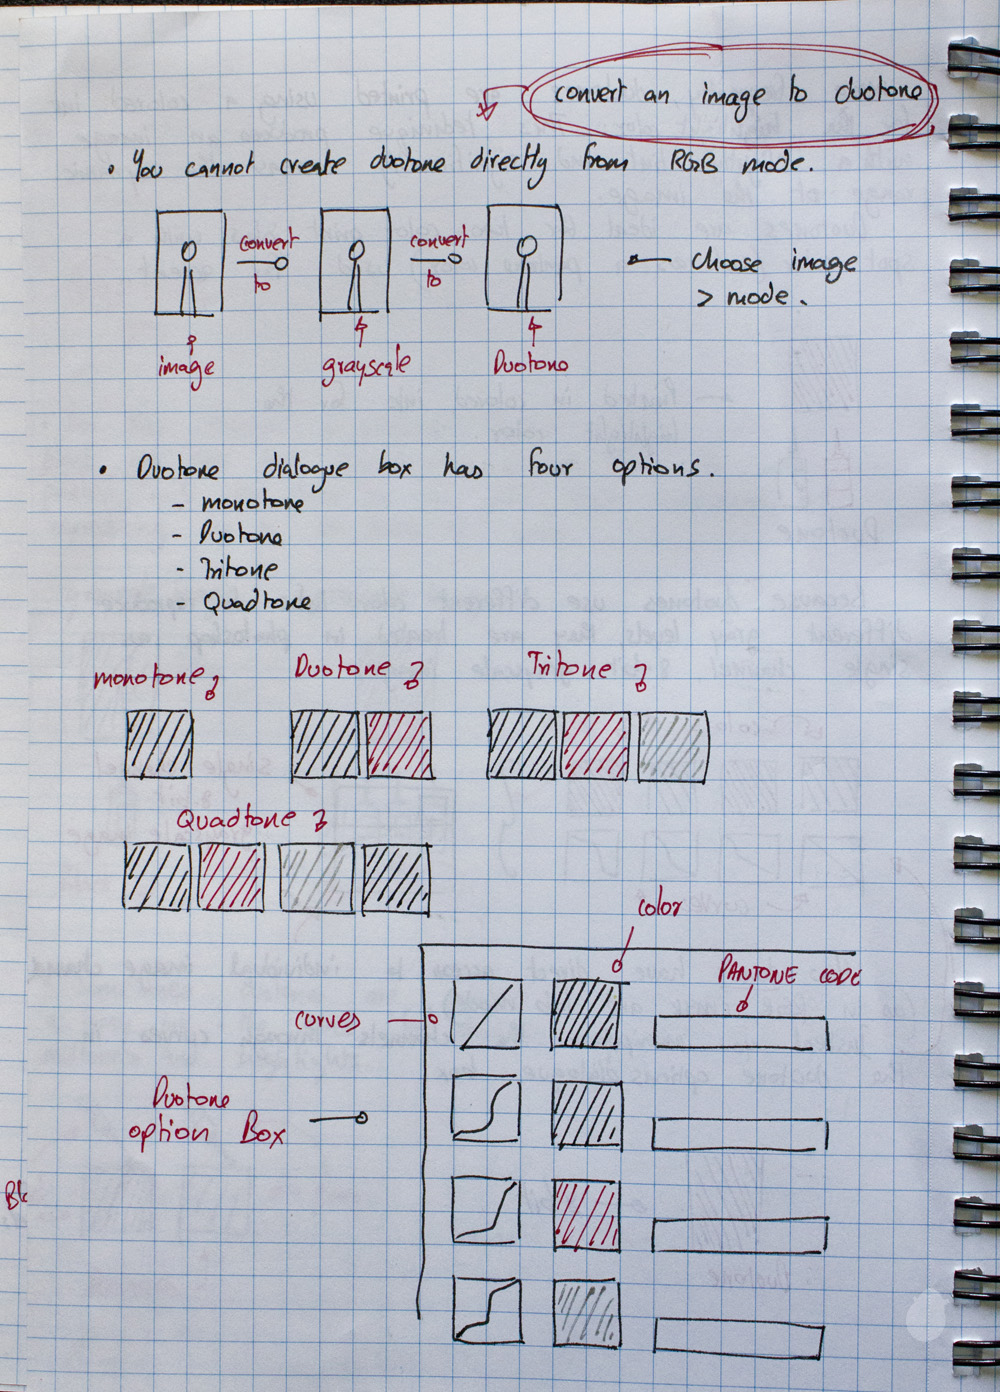 convert an image to duotone
• You cannot create duotone directly from RGB mode.
convert
to
convert
to
choose image
> mode.
image
grayscale
Duotone
• Duotone dialogue box has four options.
- monotone
- Duotone
- Tritone
- Quadtone
monotone
Duotone
Tritone
Quadtone
color
PANTONE CODE
curves
Duotone
option Box